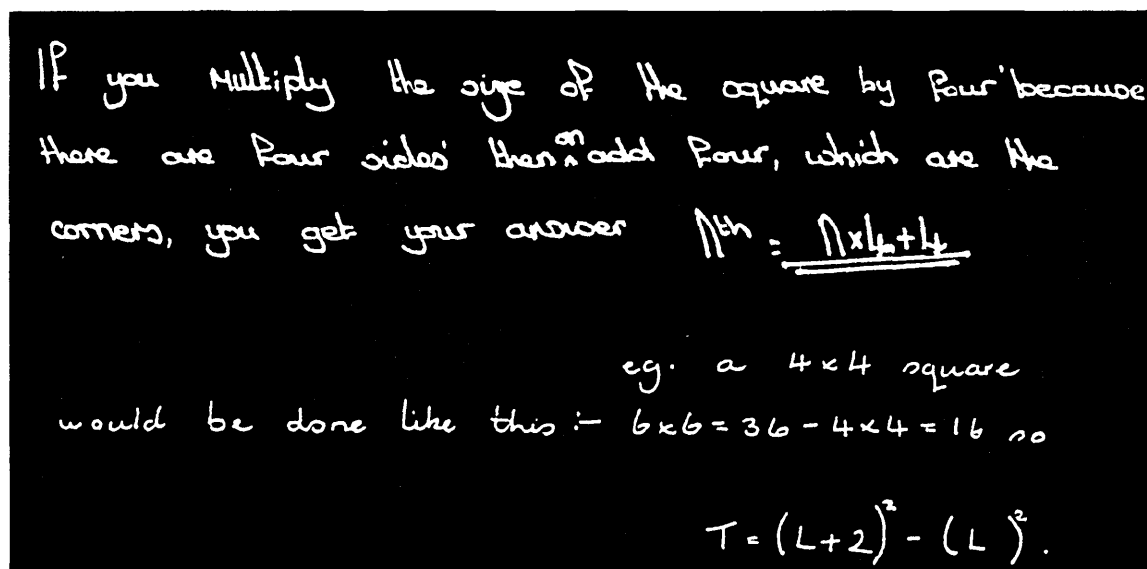 If you Multiply the size of the square by four 'because
there are four sides' then on add four, which are the
corners, you get your answer nth = n×4+4
eg. a 4×4 square
would be done like this :- 6×6 = 36 - 4×4 = 16 so
T = (L+2)² - (L)².